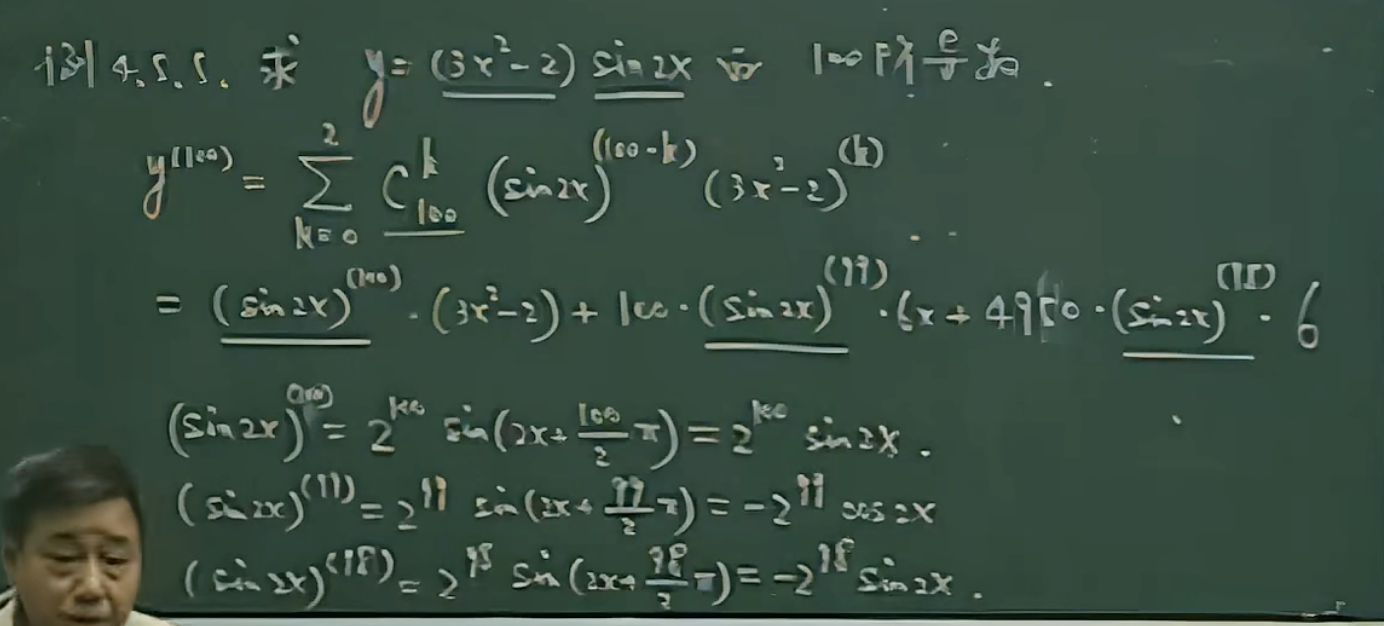 例4.5.5. 求 y = (3x²-2) sin2x 的 100 阶导数.
y^{(100)} = \sum_{k=0}^{2} C_{100}^{k} (sin2x)^{(100-k)} (3x²-2)^{(k)}
= (sin2x)^{(100)} · (3x²-2) + 100 · (sin2x)^{(99)} · 6x + 4950 · (sin2x)^{(98)} · 6
(sin2x)^{(100)} = 2^{100} sin(2x + \frac{100}{2}π) = 2^{100} sin2x .
(sin2x)^{(99)} = 2^{99} sin(2x + \frac{99}{2}π) = -2^{99} cos2x
(sin2x)^{(98)} = 2^{98} sin(2x + \frac{98}{2}π) = -2^{98} sin2x .